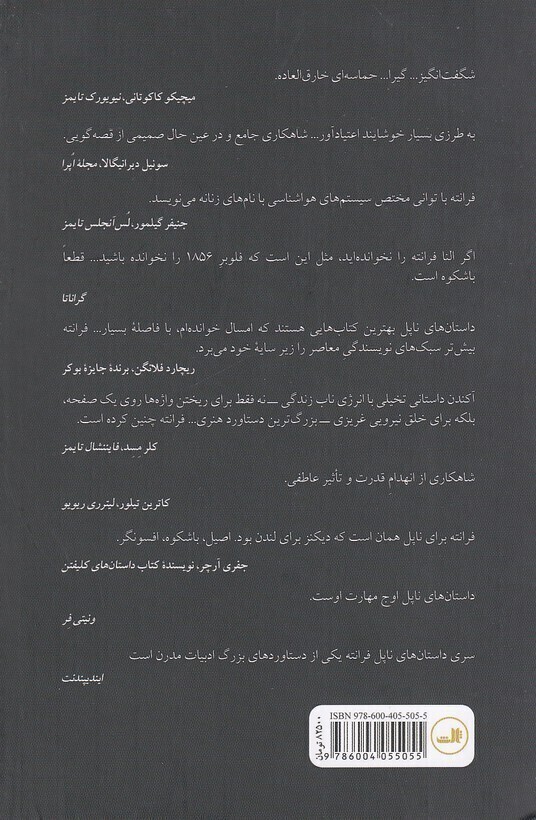 شگفت‌انگیز... گیرا... حماسه‌ای خارق‌العاده.
میچیکو کاکوتانی، نیویورک تایمز
به طرزی بسیار خوشایند اعتیادآور... شاهکاری جامع و در عین حال صمیمی از قصه‌گویی.
سونیل دیرانیگالا، مجلهٔ اُپرا
فرانته با توانی مختص سیستم‌های هواشناسی با نام‌های زنانه می‌نویسد.
جنیفر گیلمور، لُس‌آنجلس تایمز
اگر النا فرانته را نخوانده‌اید، مثل این است که فلوبرِ ۱۸۵۶ را نخوانده باشید... قطعاً
باشکوه است.
گرانتا
داستان‌های ناپل بهترین کتاب‌هایی هستند که امسال خوانده‌ام، با فاصلهٔ بسیار... فرانته
بیش‌تر سبک‌های نویسندگیِ معاصر را زیر سایهٔ خود می‌برد.
ریچارد فلانگن، برندهٔ جایزهٔ بوکر
آکندن داستانی تخیلی با انرژی ناب زندگی ــ نه فقط برای ریختن واژه‌ها روی یک صفحه،
بلکه برای خلق نیرویی غریزی ــ بزرگ‌ترین دستاورد هنری... فرانته چنین کرده است.
کلر مِسِد، فایننشال تایمز
شاهکاری از انهدامِ قدرت و تأثیر عاطفی.
کاترین تیلور، لیترری ریویو
فرانته برای ناپل همان است که دیکنز برای لندن بود. اصیل، باشکوه، افسونگر.
جفری آرچر، نویسندهٔ کتاب داستان‌های کلیفتن
داستان‌های ناپل اوج مهارت اوست.
ونیتی فِر
سری داستان‌های ناپل فرانته یکی از دستاوردهای بزرگ ادبیات مدرن است
ایندیپندنت
ISBN 978-600-405-505-5
9 786004 055055
۸۲۵۰۰ تومان
ثالث